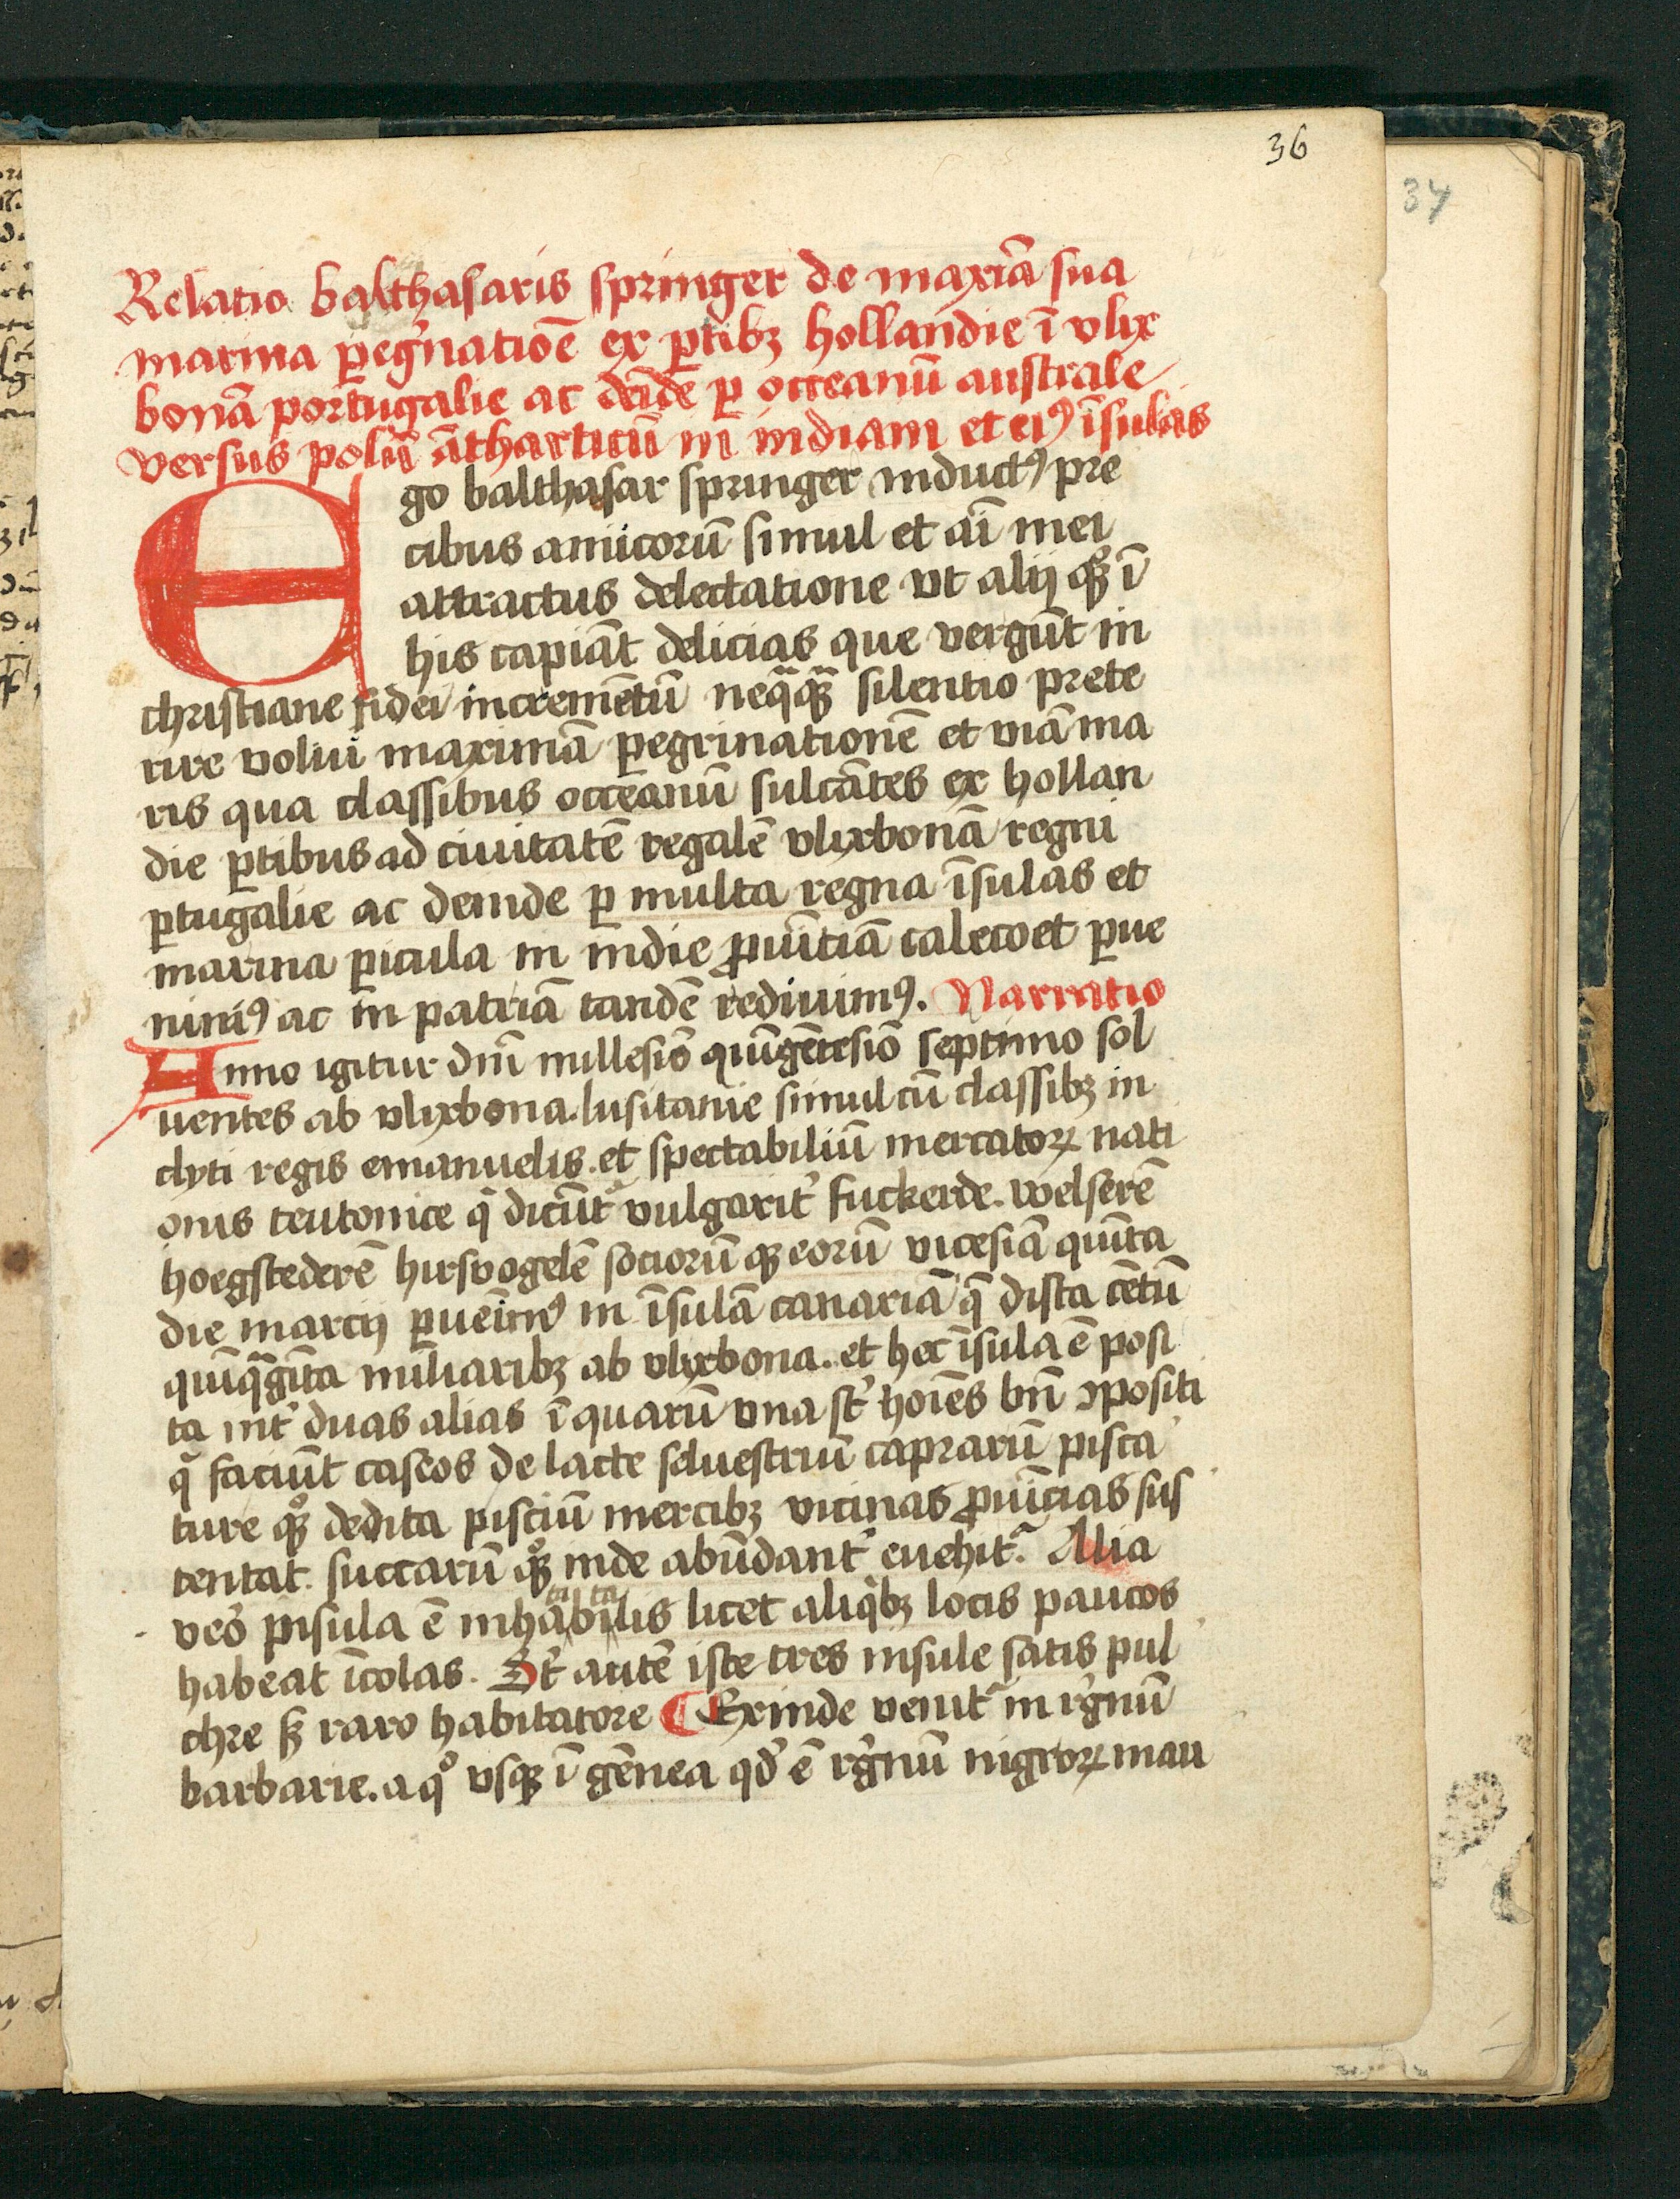 36
37
Relatio balthasaris springer de maxīa sua
marina pegͥnatiōe ex ꝑtibꝫ hollandie ī vlix
bonā portugalie ac deīde ꝑ occeanū australe
versus polū āthartiticū in indiam et eiꝰ īsulas
Ego balthasar springer inductꝰ pre
cibus amicorū simul et aī mei
attractus delectatione vt alij qͦꝫ ī
his capiāt delicias que vergūt in
christiane fidei incremētū neqͣqͣꝫ silentio prete
rire volui maximā ꝑegrinationē et viā ma
ris qua classibus occeanū sulcātes ex hollan
die ꝑtibus ad ciuitatē regalē vlixbonā regni
ꝑtugalie ac deinde ꝑ multa regna īsulas et
marina ꝑicula in indie ꝓuītiā calecoet ꝑue
nimꝰ ac in patriā tandē rediuimꝰ. Narratio
Anno igitur dnī millesiō quīgētesiō septimo sol
uentes ab vlixbona lusitanie simul cū classibꝫ in
clyti regis emanuelis. et spectabiliū mercatoꝝ nati
onis teutonice qͥ dicūtͬ vulgarit᾽ fuckerde. welserē
hoegstederē hirsvogelē sociorū qꝫ eorū vicesīa quīta
die marcij ꝑueīmꝰ in īsulā canariā q̄ dista cētū
quīqͣgīta miliaribꝫ ab vlixbona. et hec īsula ē posi
ta int᾽ duas alias ī quarū vna st᾽ hoīes bn̄ ꝯpositi
qͥ faciūt caseos de lacte siluestriū caprarū pisca
ture qͦꝫ dedita pisciū mercibꝫ vicinas ꝓuīcias sus
tentat. succarū qͦꝫ inde abūdant᾽ euehitͬ. Alia
ta ta
veͦ pīsula ē inhabilis licet aliqͥbꝫ locis paucos
habeat īcolas. St᾽ autē iste tres insule satis pul
chre sꝫ raro habitatore ¶ Exinde venitͬ in rͤgnū
barbarie. a qͦ vsqꝫ ī gēnea qd᾽ ē rͤgnū nigroꝝ mau